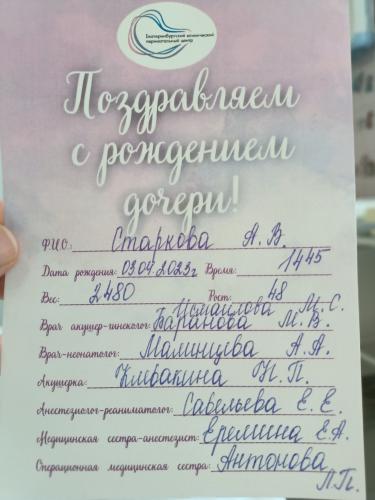 Екатеринбургский клинический
перинатальный центр
Поздравляем
с рождением
дочери!
Ф.И.О.: Старкова А.В.
Дата рождения: 03.04.2023г Время: 1445
Вес: 2480 Рост: 48
Исмаилова М.С.
Врач акушер-гинеколог: Баранова М.В.
Врач-неонатолог: А.А.
Акушерка: Н.П.
Анестезиолог-реаниматолог: Савельева Е.Е.
Медицинская сестра-анестезист: Еремина Е.А.
Операционная медицинская сестра: Антонова
Л.П.